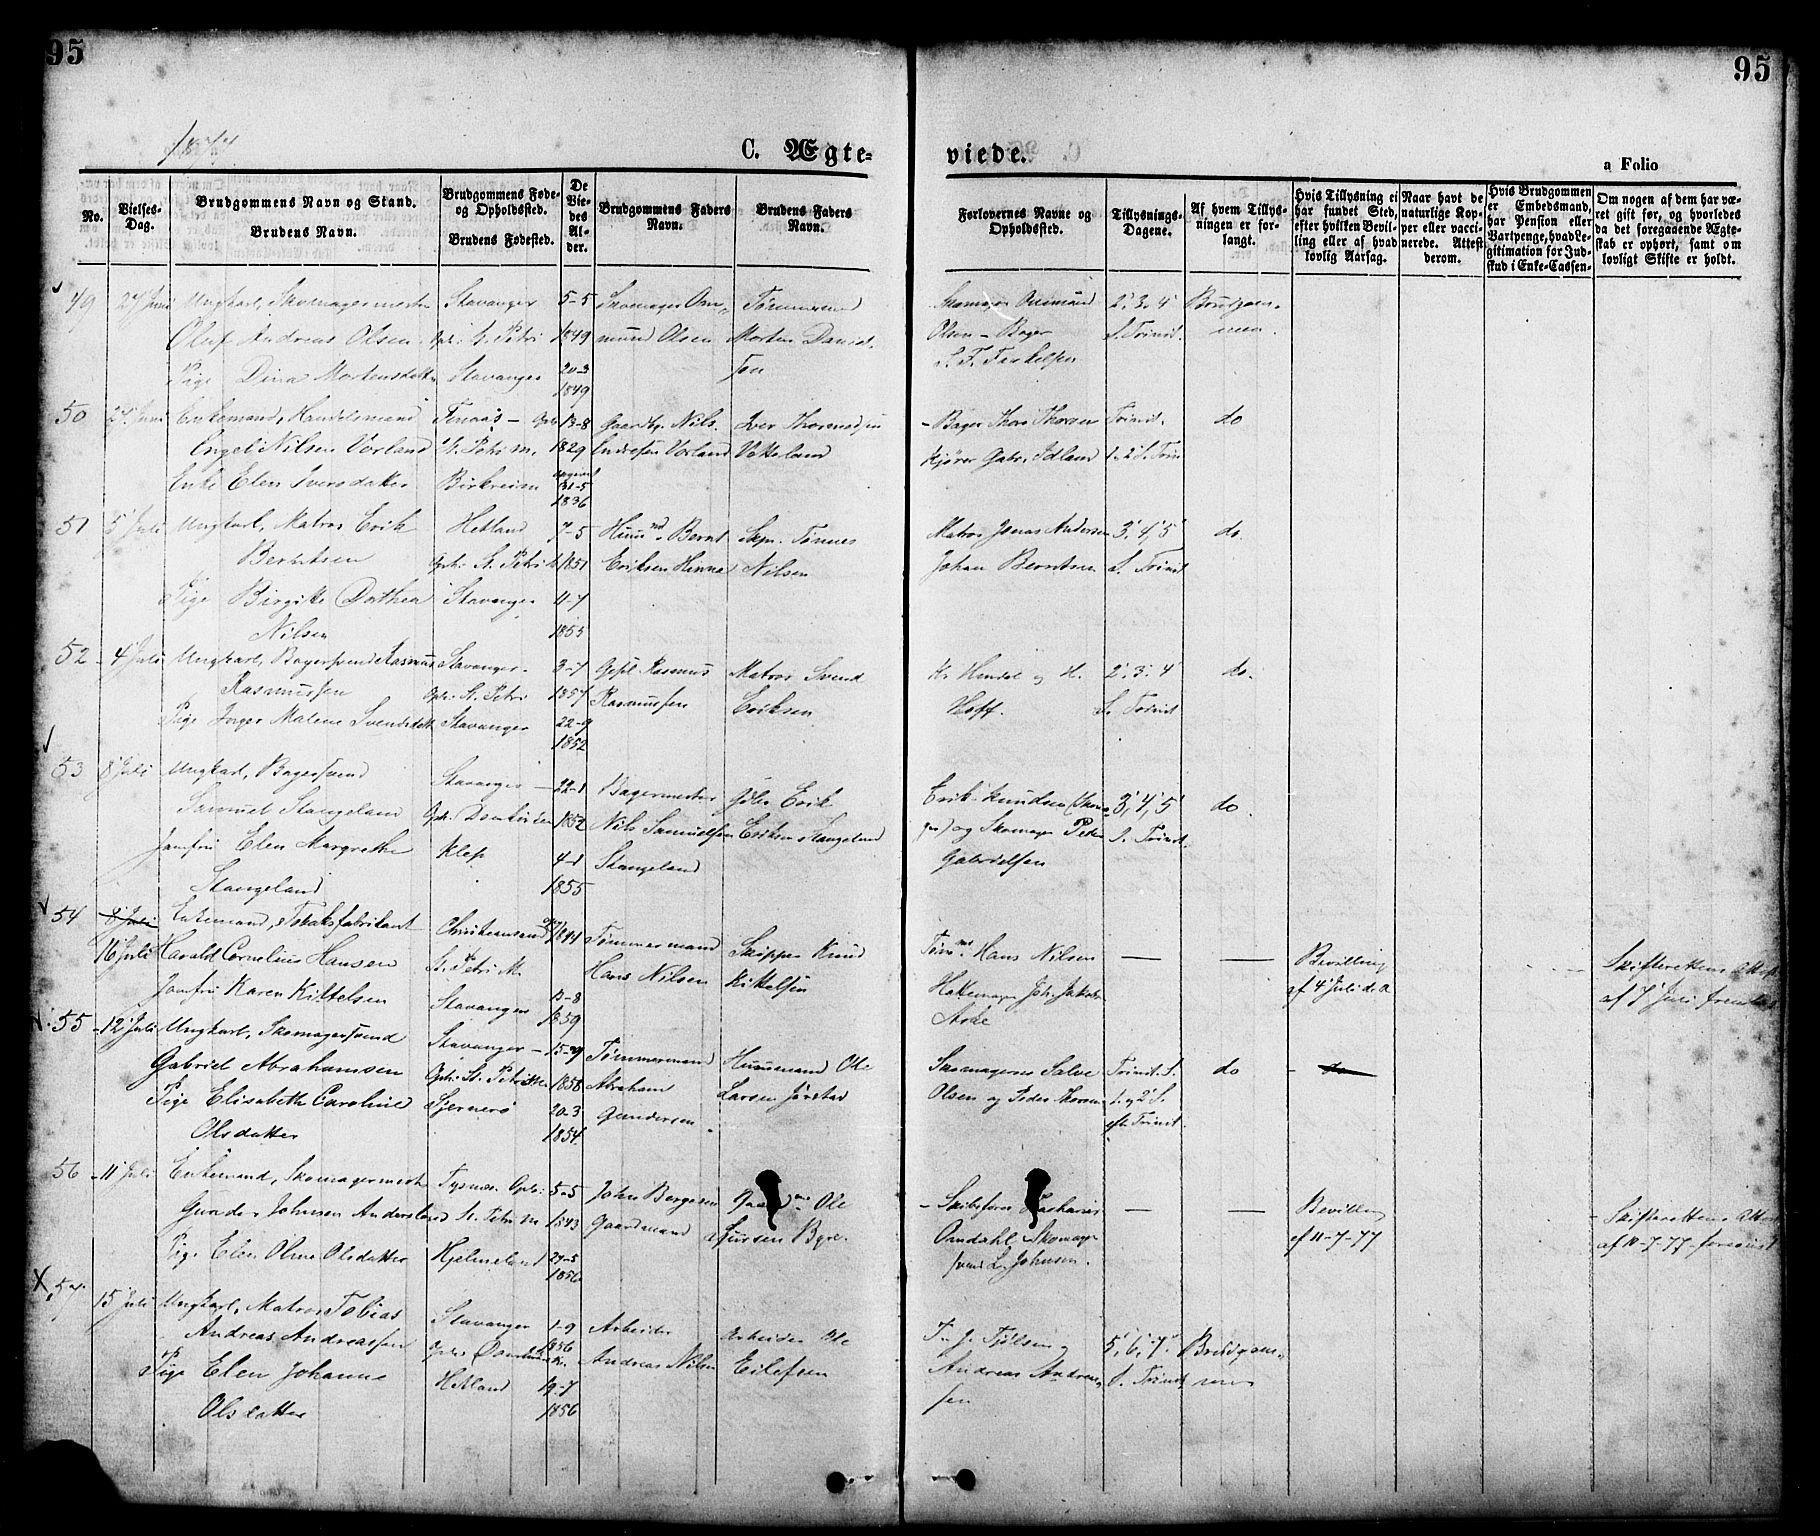 95
95
C. Ægte-
viede.
a Folio
No.
Vielses-
Dag.
Brudgommens Navn og Stand.
Brudens Navn.
Brudgommens Føde-
og Opholdssted.
Brudens Fødested.
De
Vie-
des
Al-
der.
Brudgommens Faders
Navn.
Brudens Faders
Navn.
Forlovernes Navne og
Opholdssted.
Tillysnings-
Dagene.
Af hvem Tillys-
ningen er for-
langt.
Hvis Tillysning ei
har fundet Sted,
efter hvilken Bevil-
ling eller af hvad
lovlig Aarsag.
Naar havt de
naturlige Kop-
per eller vacci-
nerede. Attest
derom.
Hvis Brudgommen
er Embedsmand,
har Pension eller
Vartpenge, hvad Le-
gitimation for Ind-
skud i Enke-Cassen.
Om nogen af dem har væ-
ret gift før, og hvorledes
da det foregaaende Ægte-
skab er ophørt, samt om
lovligt Skifte er holdt.
49 24 Juni Ungkarl, Skomagermester Stavanger 5-5 Skomager Om- Tømmermand
Oluf Andreas Olsen Oph. St. Petri 1849 mund Olsen Morten Daniel-
Pige Dina Mortensdatter Stavanger 20-3 sen
1849
Skomager Ommund 2', 3', 4' Brudgom-
Olsen - Bager S. Trinit. men
50 24 Juni Enkemand, Handelsmand 13-8 Gaardbr. Nils Iver
Engel Nilsen Vorland St. Petri M. 1829 Endresen Vorland
Enke Elen Iversdatter Birkreim 31-5
1836
Bager Thore Thorsen Trinit. do
Kjører Gabr. Idland 1. 2' S. Trin
51 5 Juli Ungkarl, Matros Erik Hetland 7-5 Huusmd. Bernt Skpr. Tønnes
Berntsen Oph. St. Petri 1851 Eriksen Hinna Nilsen
Pige Birgitte Dorthea Stavanger 11-7
Nilsen 1855
Matros Jonas Andersen 3', 4', 5' do.
Johan Berntsen S. Trinit
52 4' Juli Ungkarl, Bagersvend Rasmus Stavanger 3-7 Rasmus Matros Svend
Rasmussen Oph. St. Petri 1854 Rasmussen Eriksen
Pige Malene Svendsdatt Stavanger 22-9
1852
og H. 2', 3', 4' do.
Hoff. S. Trinit
53 8' Juli Ungkarl, Bagersvend Stavanger 22-1 Bagermester Erik
Samuel Stangeland Oph. Domkirken 1852 Nils Samuelsen Eriksen Stangeland
Jomfru Elen Margrethe Klep 4-1 Stangeland
Stangeland 1855
Erik Knudsen 3', 4', 5' do
og Skomager Peter S. Trinit.
Gabrielsen
54 8' Juli Enkemand, Tobaksfabrikant Christiansand 1841 Tømmermand Skipper Knud
16 Juli Harald Cornelius Hansen St. Petri M. Hans Nilsen Kittelsen
Jomfru Karen Kittelsen Stavanger 13-8
1859
Tømmd. Hans Nilsen — — Bevilling Skifterettens Attest
Joh. Jakob af 4' Juli d. A af 7' Juli
Aske
55 12' Juli Ungkarl, Skomagersvend Stavanger Tømmermand Huusmand Ole
Gabriel Abrahamsen Oph. St. Petri 1858 Abraham Larsen Jørstad
Pige Elisabeth Caroline Sjernerø 20-3 Gundersen
Olsdatter 1854
Skomagerne Salve Trinit. S. do do
Olsen og Peder Thorsen 1. og 2' S.
eft. Trinit.
56 11 Juli Enkemand, Skomagermester Tysnæs Oph. 5-5 John Børgesen Ole
Gunder Johnsen Andersland St. Petri M 1843 Gaardmand Sjursen Byre.
Pige Elen Oline Olsdatter Hjelmeland 27-5
1856
Skibsfører Zacharias — — Bevilling Skifterettens Attest
Omdahl Skomager- af 11-7-77 af 10-7-77 forevist
svend L. Johnsen.
57 15 Juli Ungkarl, Matros Tobias Stavanger 1-9 Arbeider Arbeider Ole
Andreas Andreassen 1856 Andreas Nilsen Eilefsen
Pige Elen Johanne Hetland 19-7
Olsdatter 1856
T. J. Tjølsen og 5', 6', 7' Brudgom-
Andreas Andreas- S. Trinit men
sen